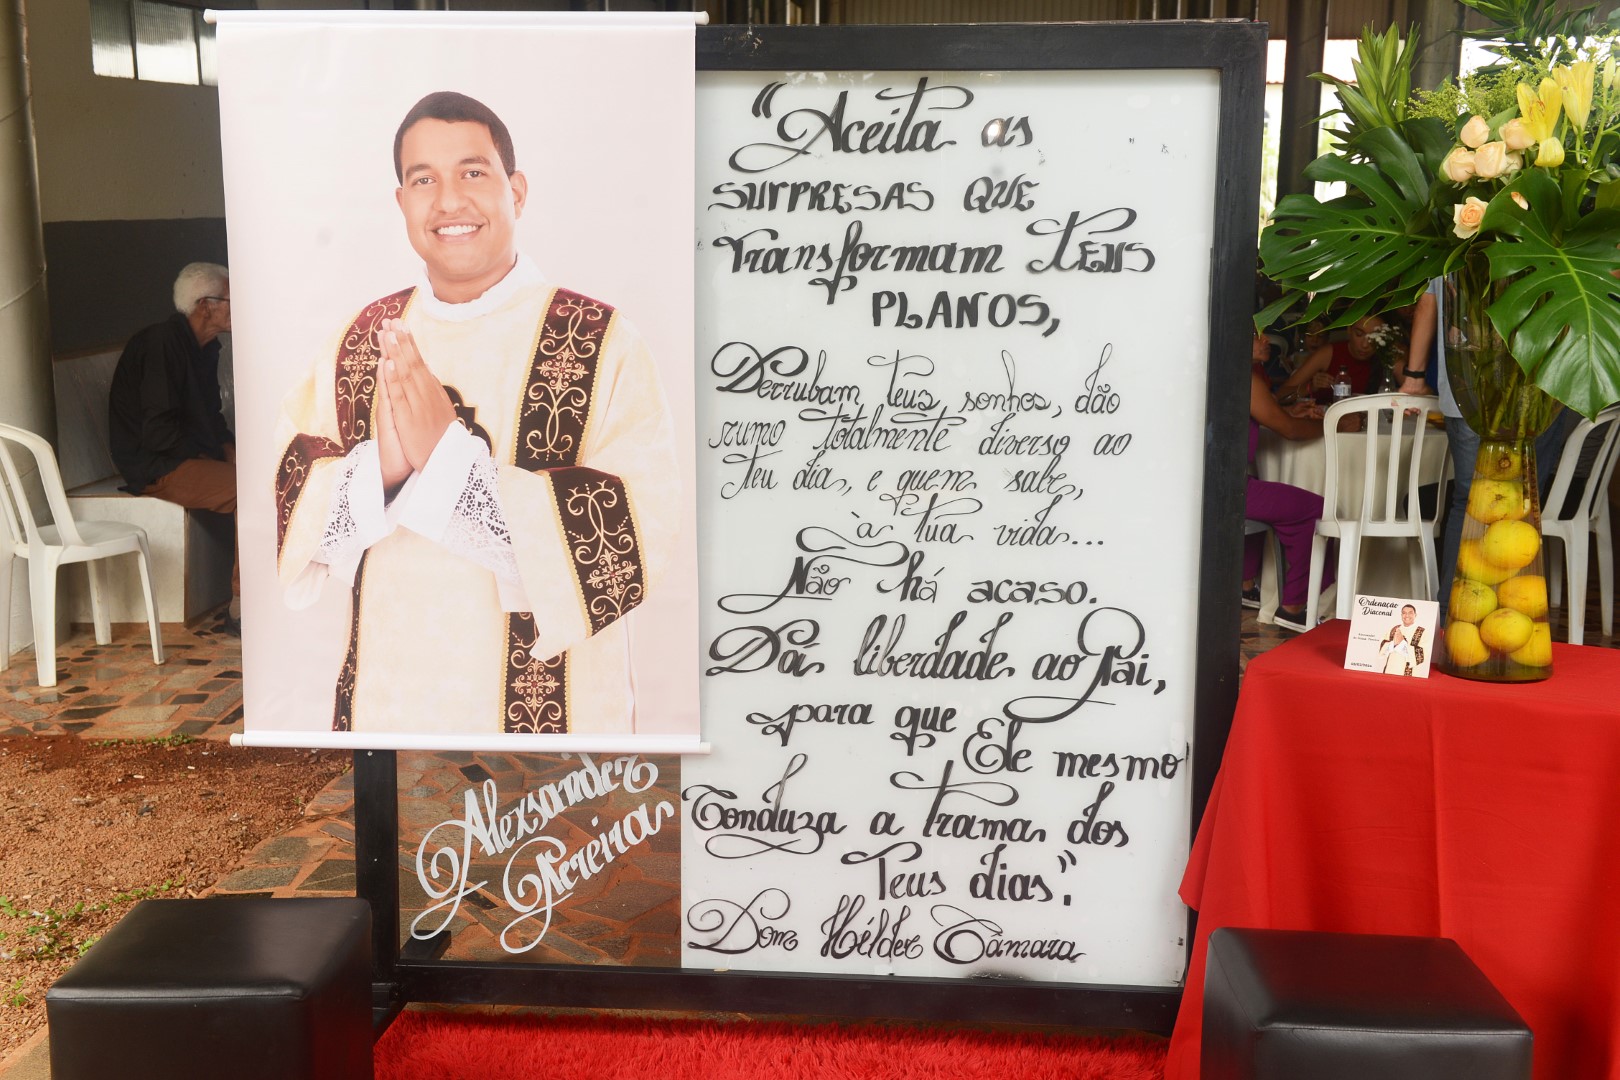 "Aceita as
surpresas que
transformam teus
planos,
Derrubam teus sonhos, dão
rumo totalmente diverso ao
teu dia, e quem sabe,
à tua vida...
Não há acaso.
Dá liberdade ao Pai,
para que Ele mesmo
Conduza a trama dos
Teus dias".
Dom Hélder Câmara
Alexsander
Pereira
Ordenação
Diaconal